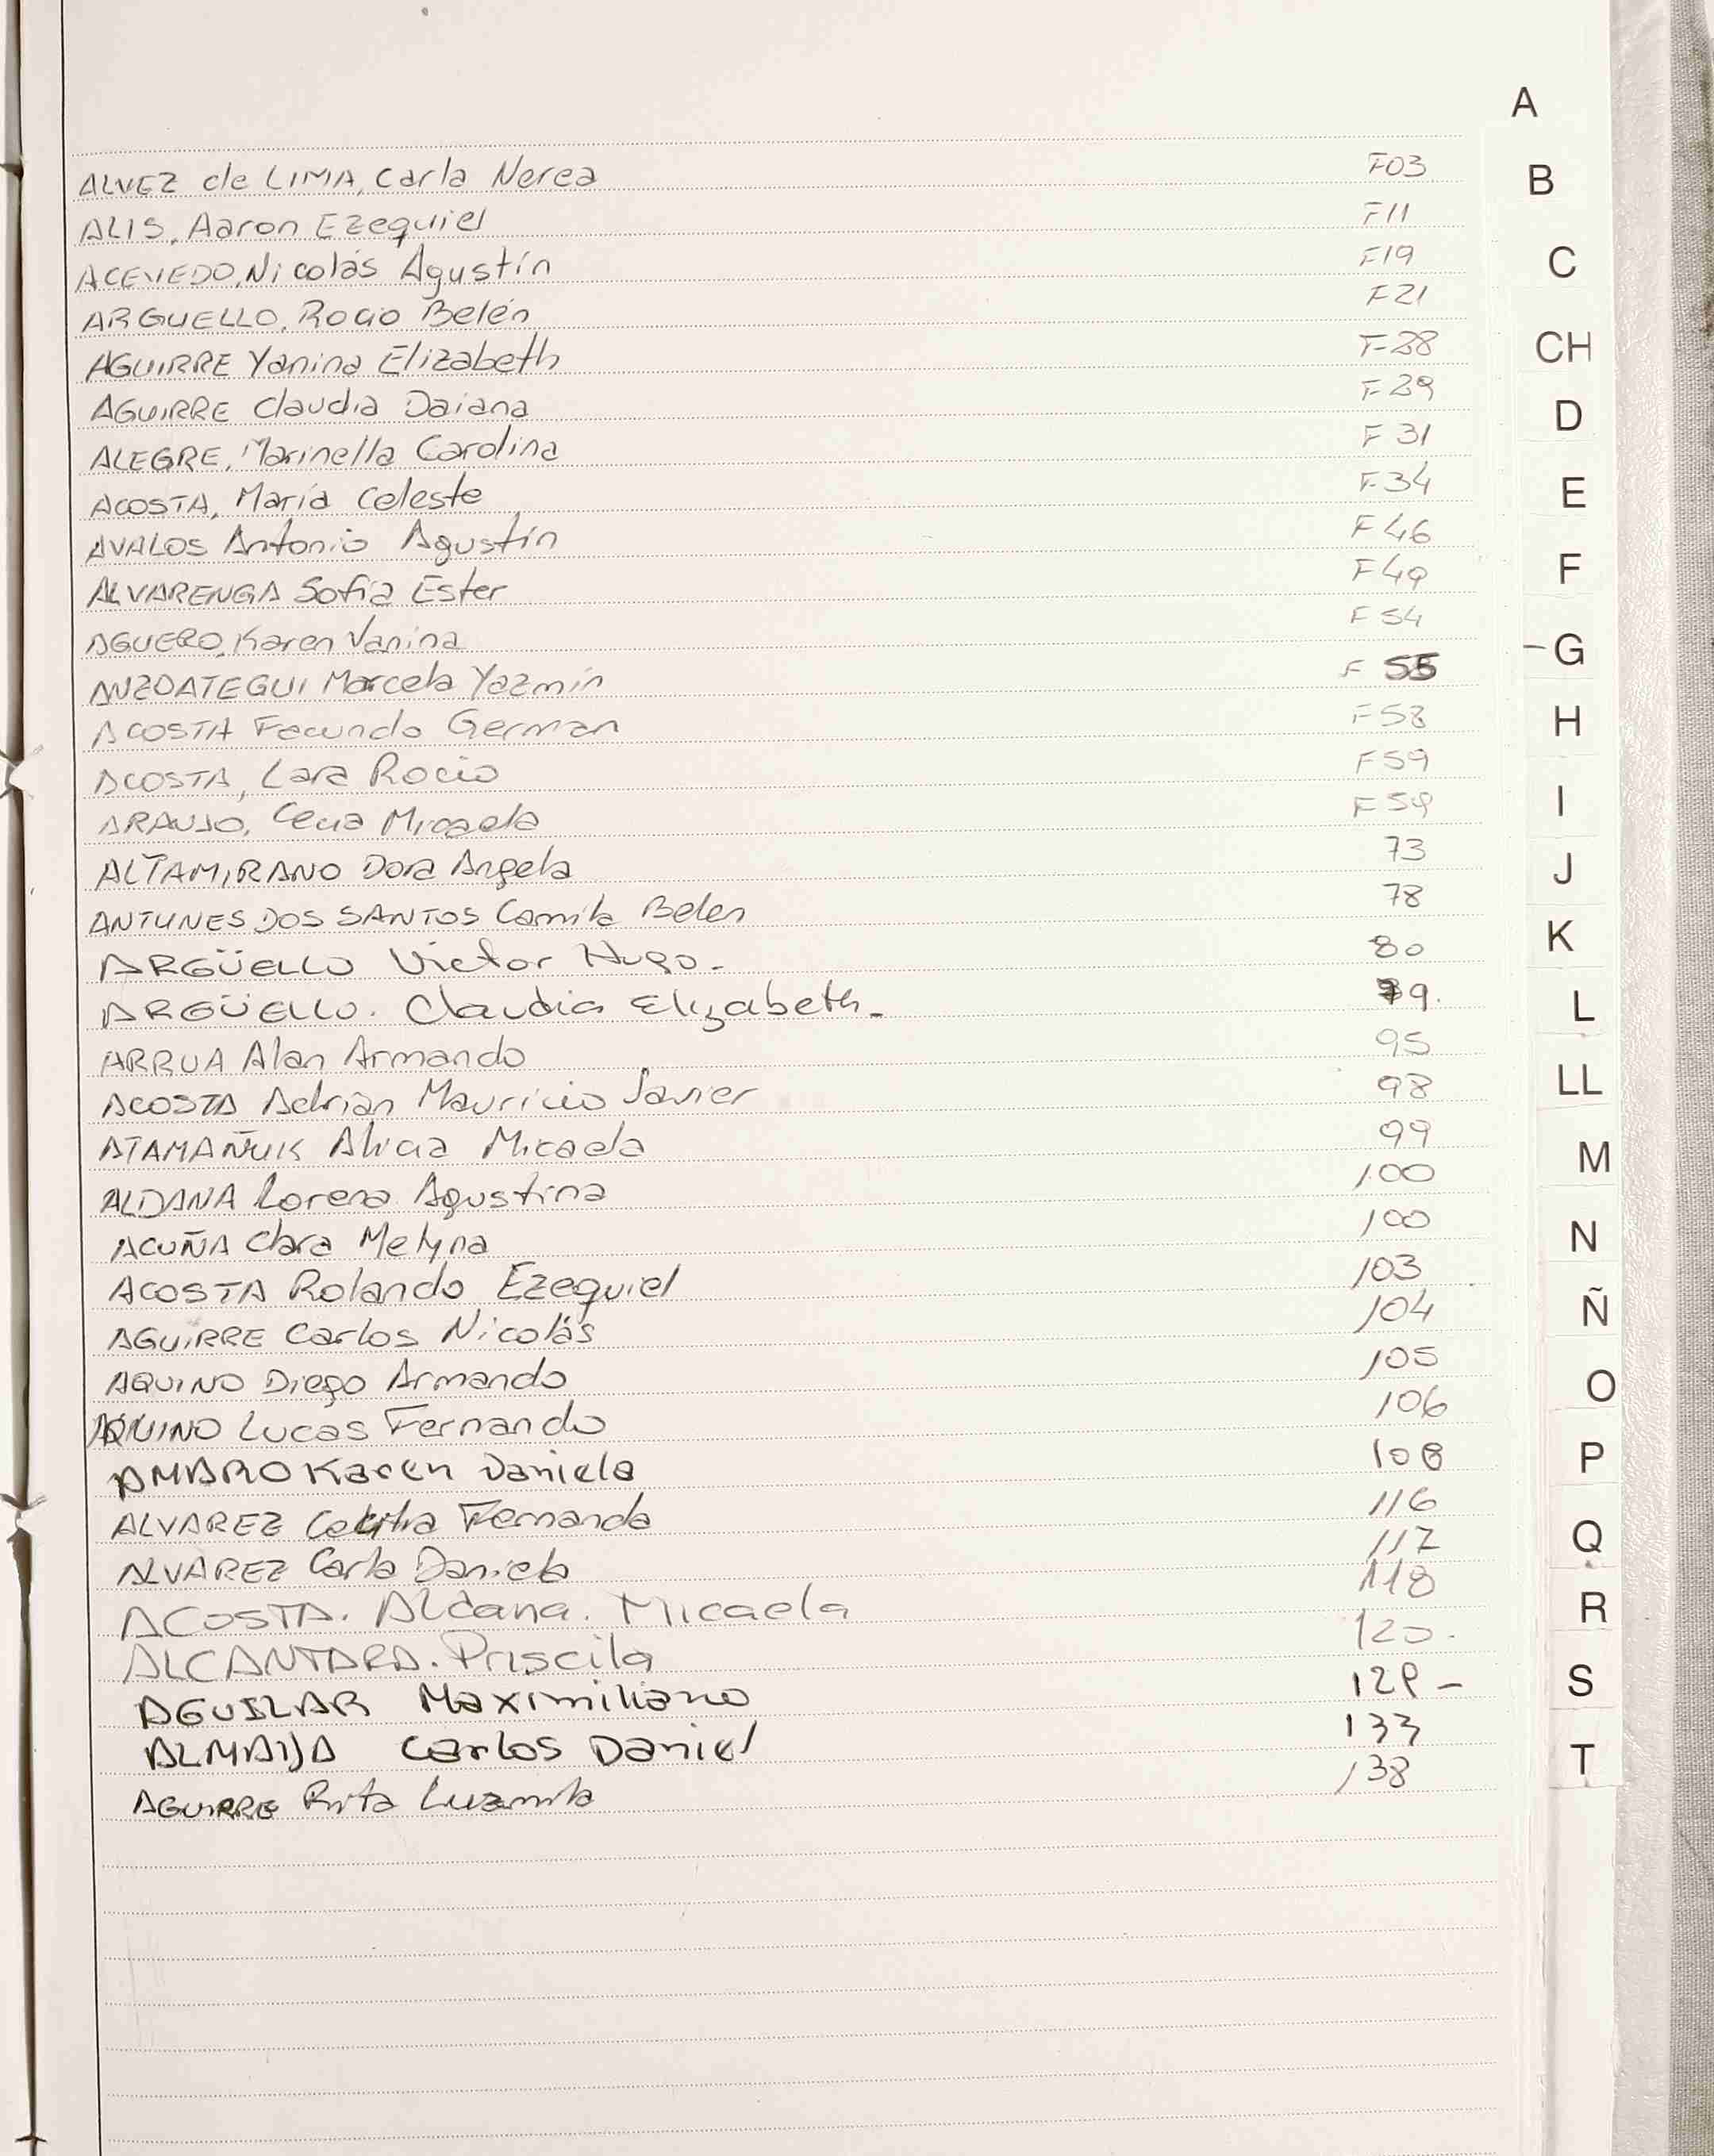 A
ALVEZ de LIMA, Carla Nerea F03
B
ALIS, Aaron Ezequiel F11
ACEVEDO, Nicolás Agustín F19
C
ARGUELLO, Rocio Belén F21
AGUIRRE Yanina Elizabeth F-28
CH
AGUIRRE Claudia Daiana F 29
D
ALEGRE, Marinella Carolina F 31
ACOSTA, María Celeste F 34
E
AVALOS Antonio Agustín F 46
ALVARENGA Sofía Ester F 49
F
AGUERO, Karen Vanina F 54
-G
ANZOATEGUI Marcela Yazmín F 55
ACOSTA Facundo German F58
H
ACOSTA, Lara Rocio F59
ARAUJO, Micaela F 59
I
ALTAMIRANO Dora Angela 73
J
ANTUNES DOS SANTOS Camila Belen 78
ARGÜELLO Victor Hugo. 80
K
ARGÜELLO. Claudia Elizabeth. 79.
L
ARRUA Alan Armando 95
ACOSTA Adrian Mauricio Javier 98
LL
ATAMAÑUK Alicia Micaela 99
M
ALDANA Lorena Agustina 100
ACUÑA Clara Melyna 100
N
ACOSTA Rolando Ezequiel 103
AGUIRRE Carlos Nicolás 104
Ñ
AQUINO Diego Armando 105
O
AQUINO Lucas Fernando 106
AMARO Karen Daniela 108
P
ALVAREZ Fernanda 116
Q
ALVAREZ Carla Daniela 117
ACOSTA. Aldana. Micaela 118
R
ALCANTARA. Priscila 120.
AGUILAR Maximiliano 129 -
S
Carlos Daniel 133
T
AGUIRRE Rita Luzmila 138